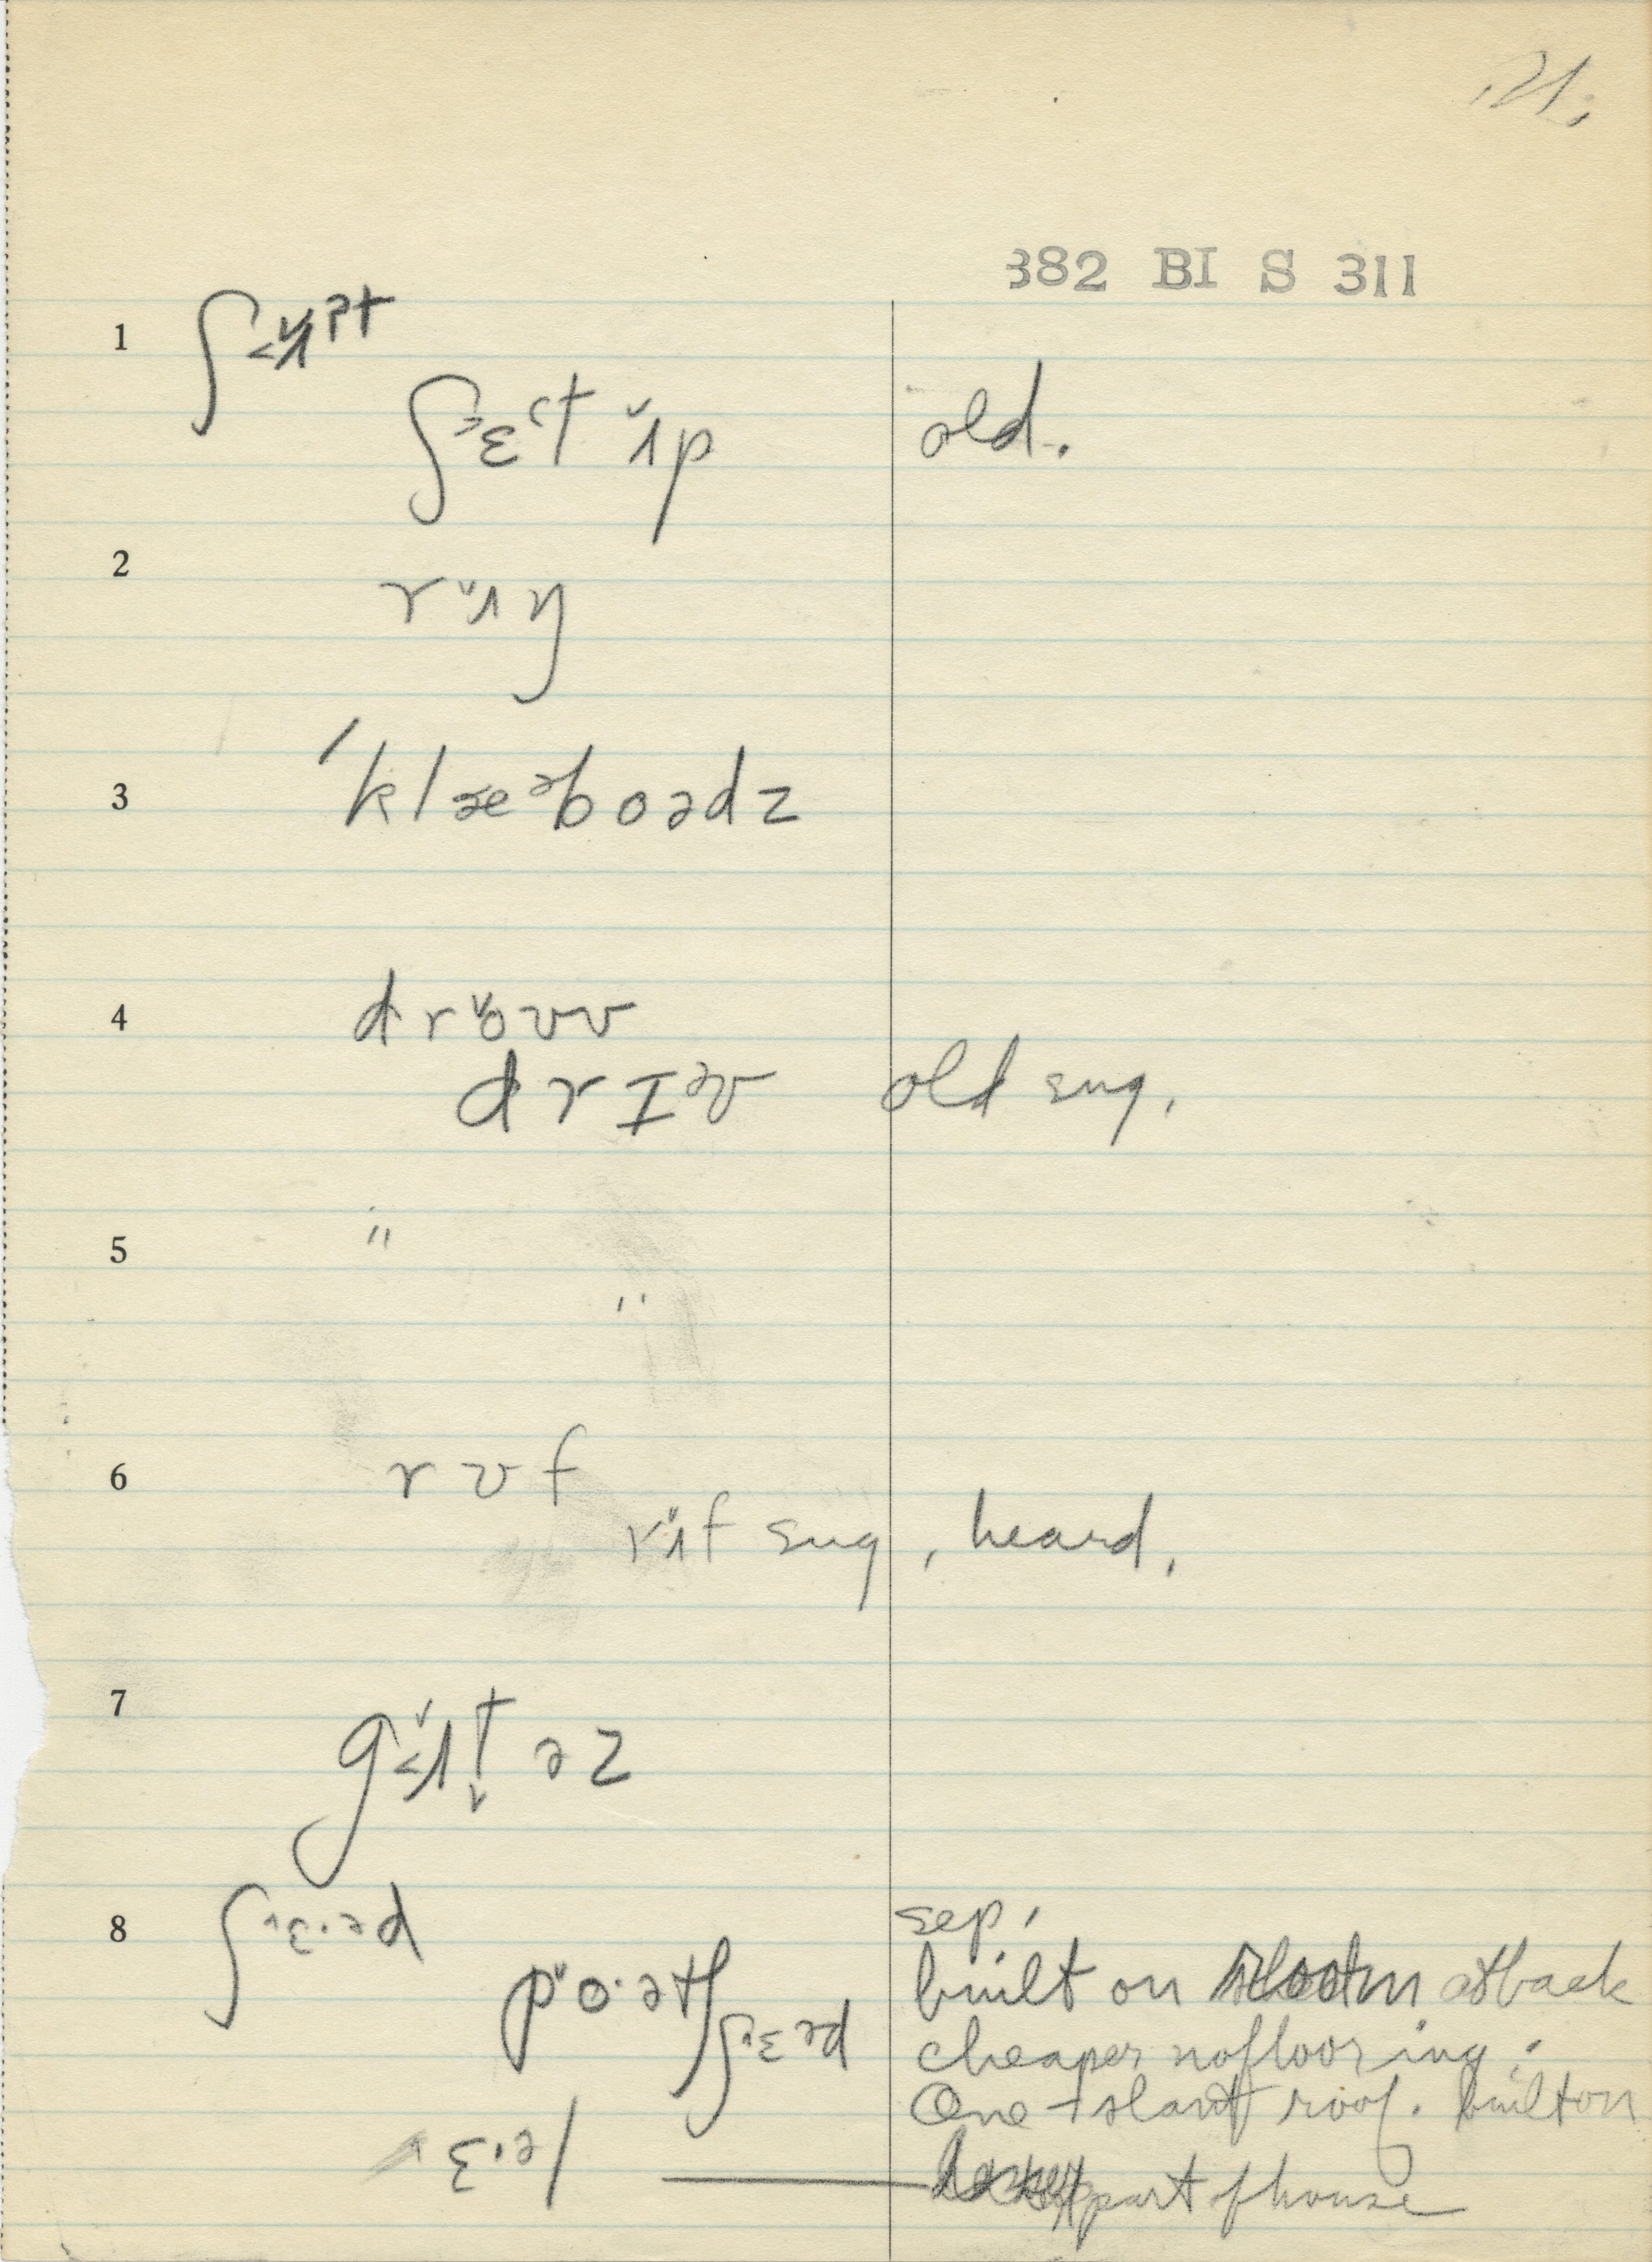 21.
382 BI S 311
1 ʃʌpt
ʃɛt ʌp old.
2 rʌŋ
3 'klæəboədz
4 droʊv
drɪəv old sug.
5 "
"
6 rʊf
rʌf sug, heard.
7 gʌtəz
8 ʃɛ·əd sep.
po·ətʃ ʃɛəd built on at back
cheaper no flooring.
One-slant roof. built on
ɛ·əl part of house